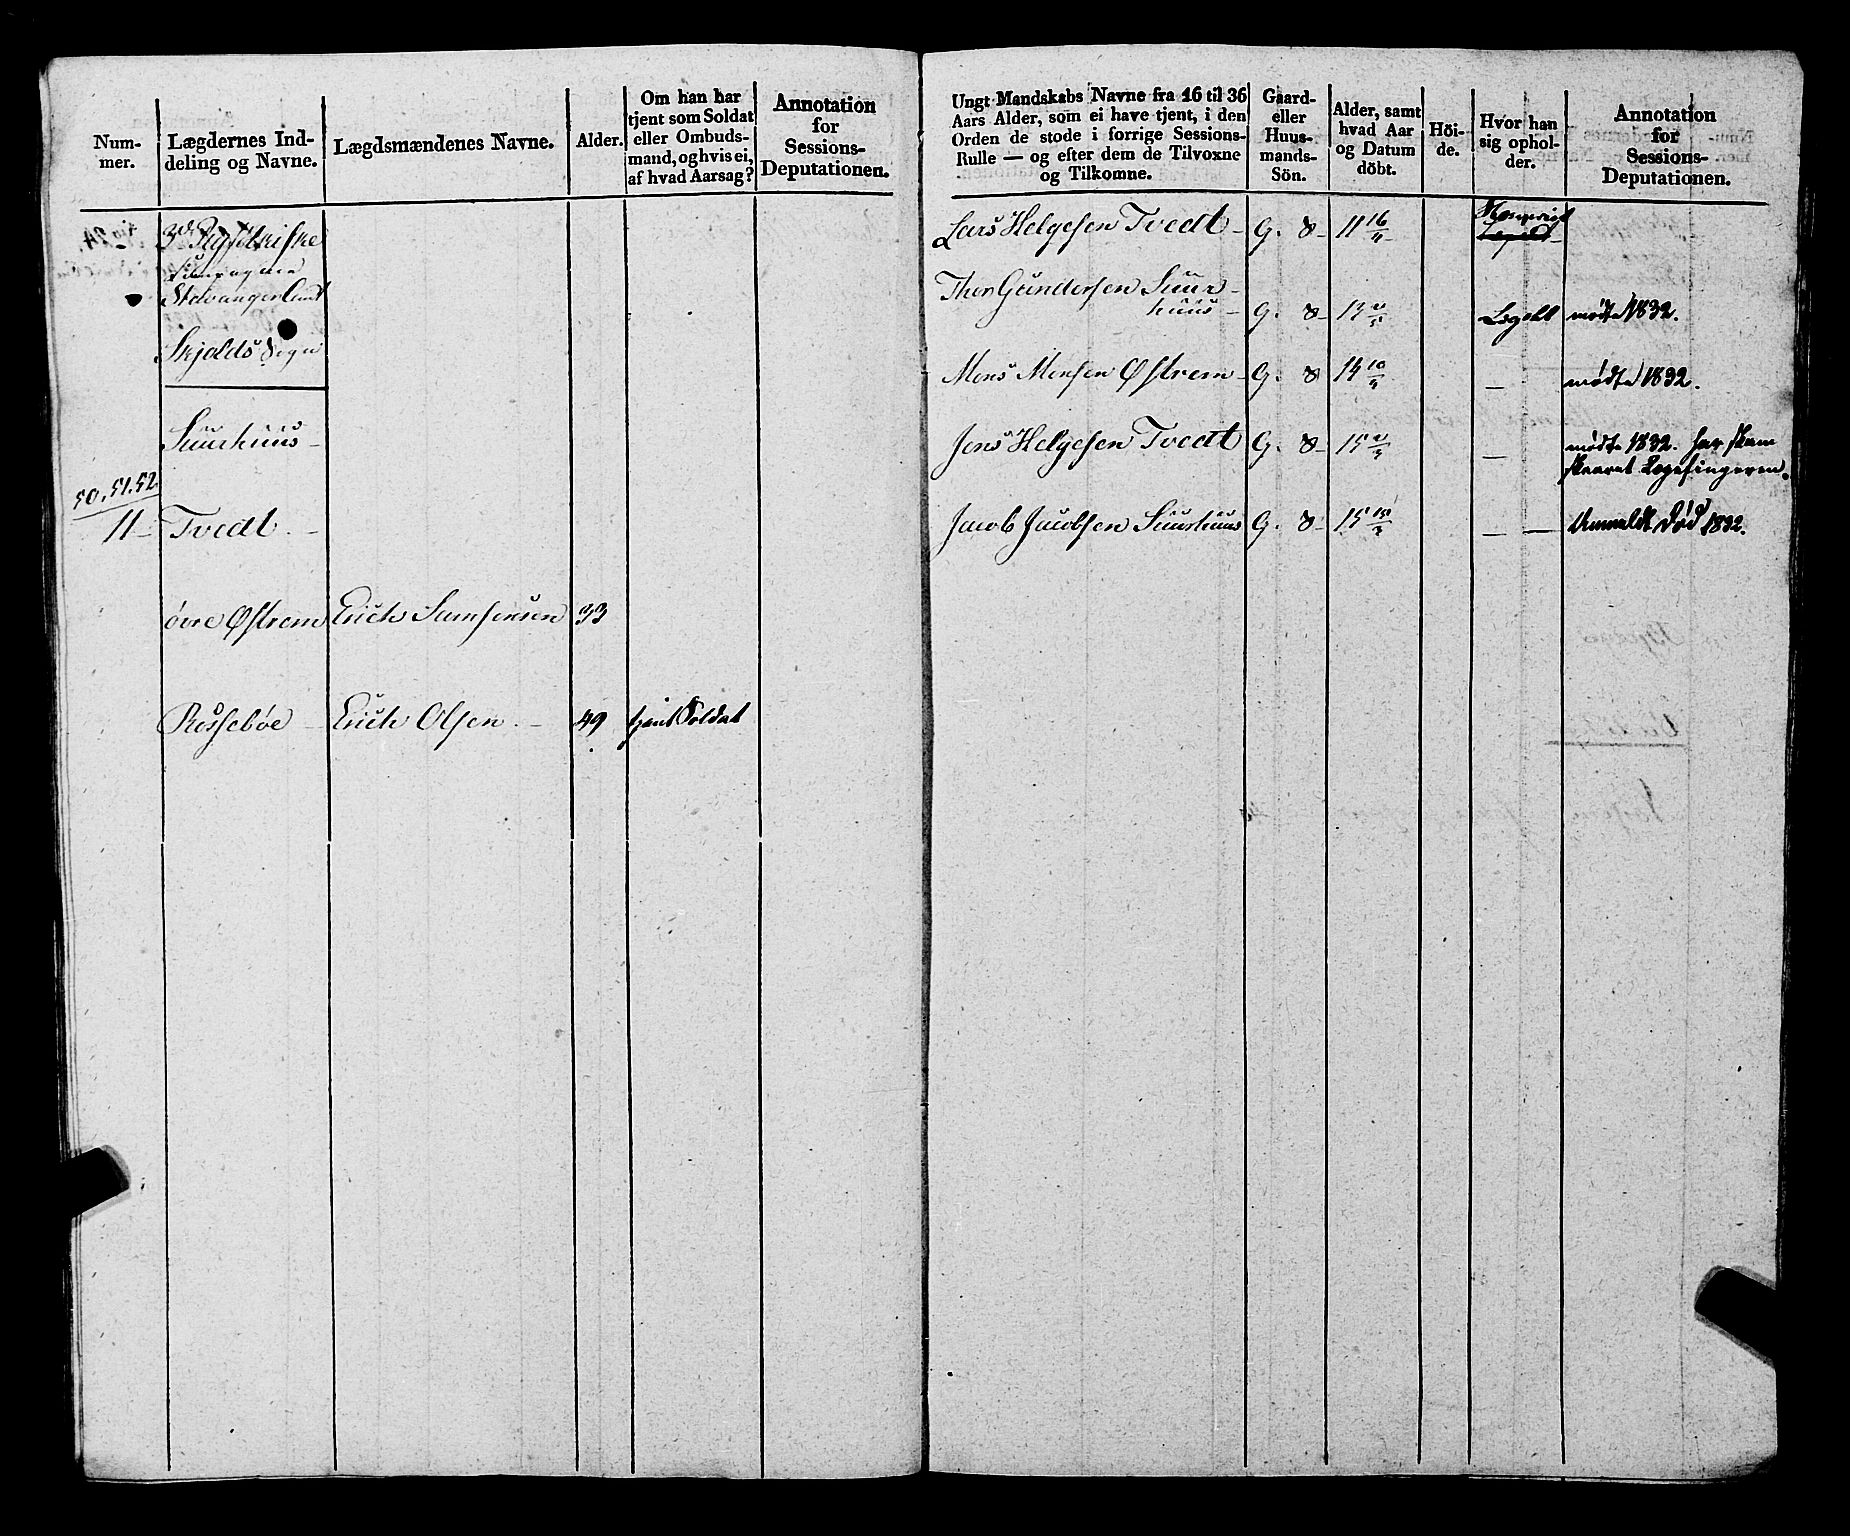 Num-
mer.
Lægdernes Ind-
deling og Navne.
Lægdsmændenes Navne.
Alder.
Om han har
tjent som Soldat
eller Ombuds-
mand, og hvis ei,
af hvad Aarsag?
Annotation
for
Sessions-
Deputationen.
3d Ryfylkiske
Compagnie
Stavanger Amt
Skjolds Sogn
Suurhuus -
50. 51. 52
11 - Tvedt. -
övre Østrem Erich Samsonsen 33
Rossebøe - Erich Olsen. - 49 tjent Soldat
Ungt Mandskabs Navne fra 16 til 36
Aars Alder, som ei have tjent, i den
Orden de stode i forrige Sessions-
Rulle — og efter dem de Tilvoxne
og Tilkomne.
Gaard-
eller
Huus-
mands-
Sön.
Alder, samt
hvad Aar
og Datum
döbt.
Höi-
de.
Hvor han
sig ophol-
der.
Annotation
for
Sessions-
Deputationen.
Lars Helgesen Tvedt - G. 8 - 11 16/11
Thor Gundersen Suur-
huus - G. 8 - 13 Lægdet mødte 1832.
Mons Monsen Østrem - G. 8 14 10/11 — mødte 1832.
Jens Helgesen Tvedt G. 8 - 15 — mødte 1832. har skam
skaaret Pegefingeren.
Jacob Jacobsen Suurhuus G. 8 - 15 — — Anmeldt Død 1832.